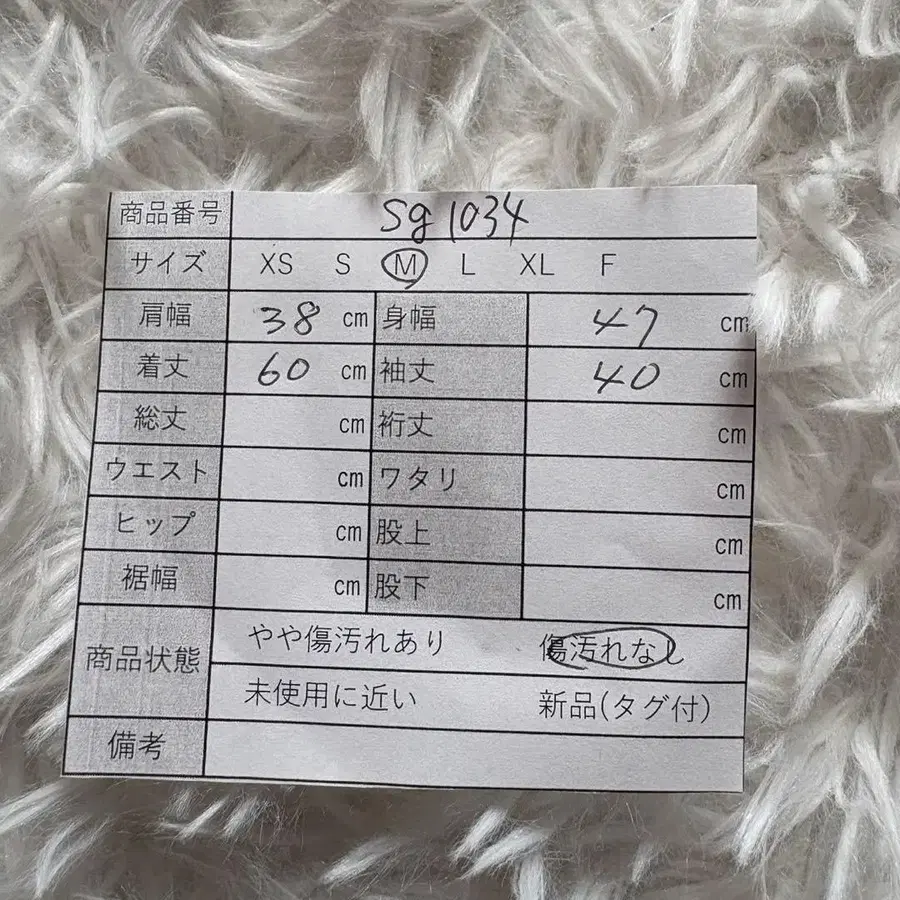 商品番号 sg1034
サイズ XS S M L XL F
肩幅 38 cm 身幅 47 cm
着丈 60 cm 袖丈 40 cm
総丈 cm 裄丈 cm
ウエスト cm ワタリ cm
ヒップ cm 股上 cm
裾幅 cm 股下 cm
商品状態 やや傷汚れあり 傷汚れなし
未使用に近い 新品(タグ付)
備考